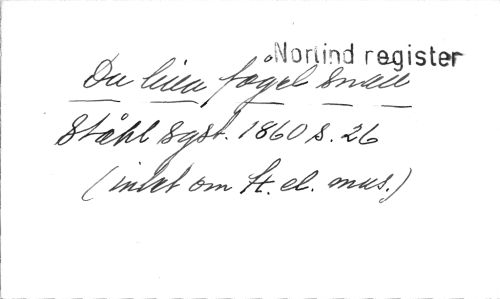 Norlind register
Du lilla fågel snäll
Ståhl Sgst. 1860 s. 26
(intet om tt. el. mus.)